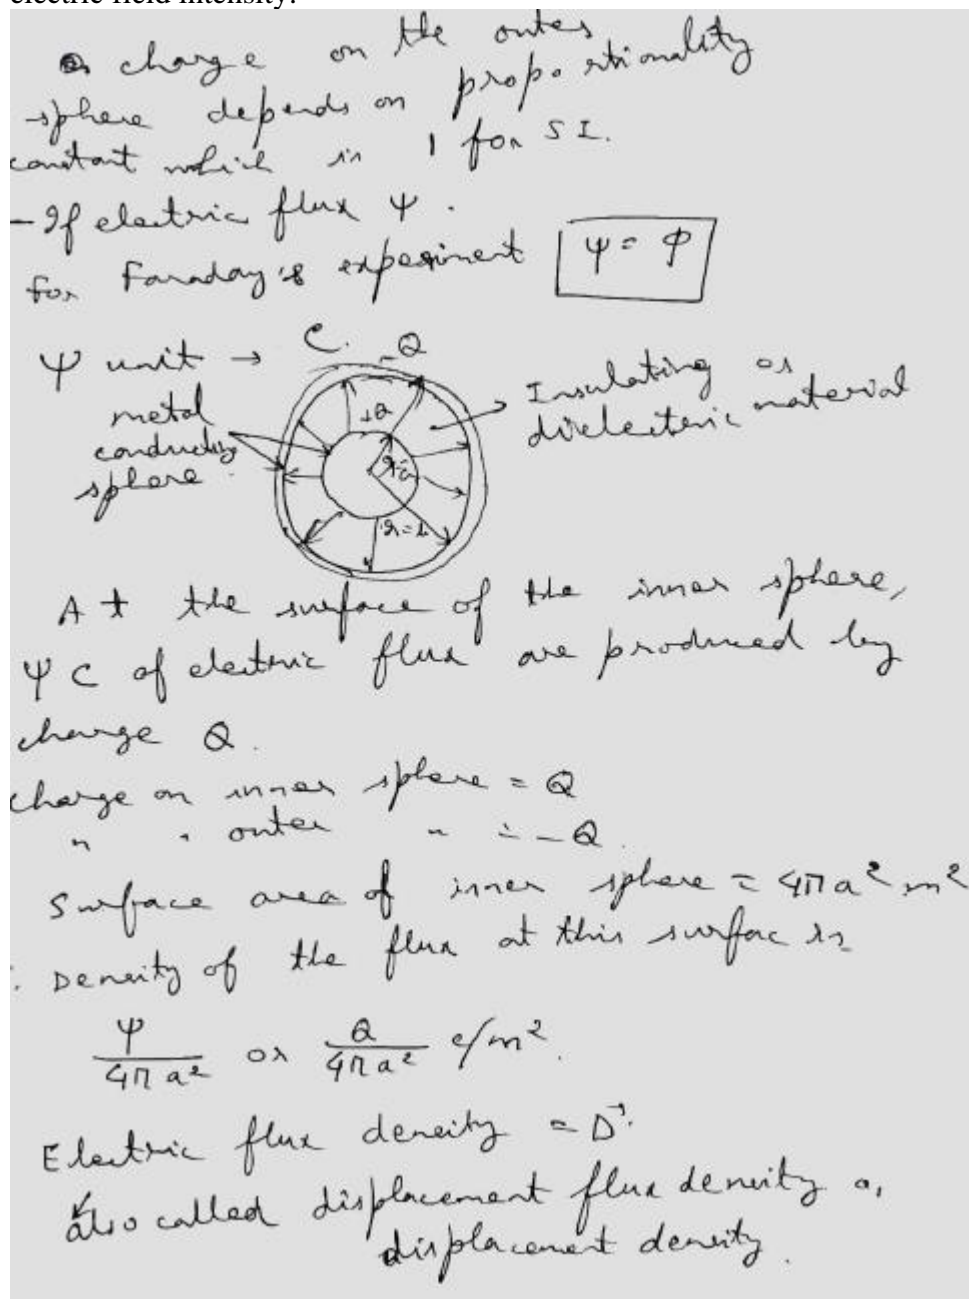 electric field intensity.
charge on the outer
sphere depends on proportionality
constant which is 1 for SI.
- If electric flux ψ.
for Faraday's experiment ψ = φ
ψ unit → C.
-Q
metal
conducting
sphere
+Q
r=a
r=b
Insulating or
dielectric material
At the surface of the inner sphere,
ψ C of electric flux are produced by
charge Q.
charge on inner sphere = Q
" " outer " = -Q.
Surface area of inner sphere = 4πa² m²
∴ Density of the flux at this surfac is
ψ/4πa² or Q/4πa² c/m².
Electric flux density = D⃗.
also called displacement flux density or
displacement density.